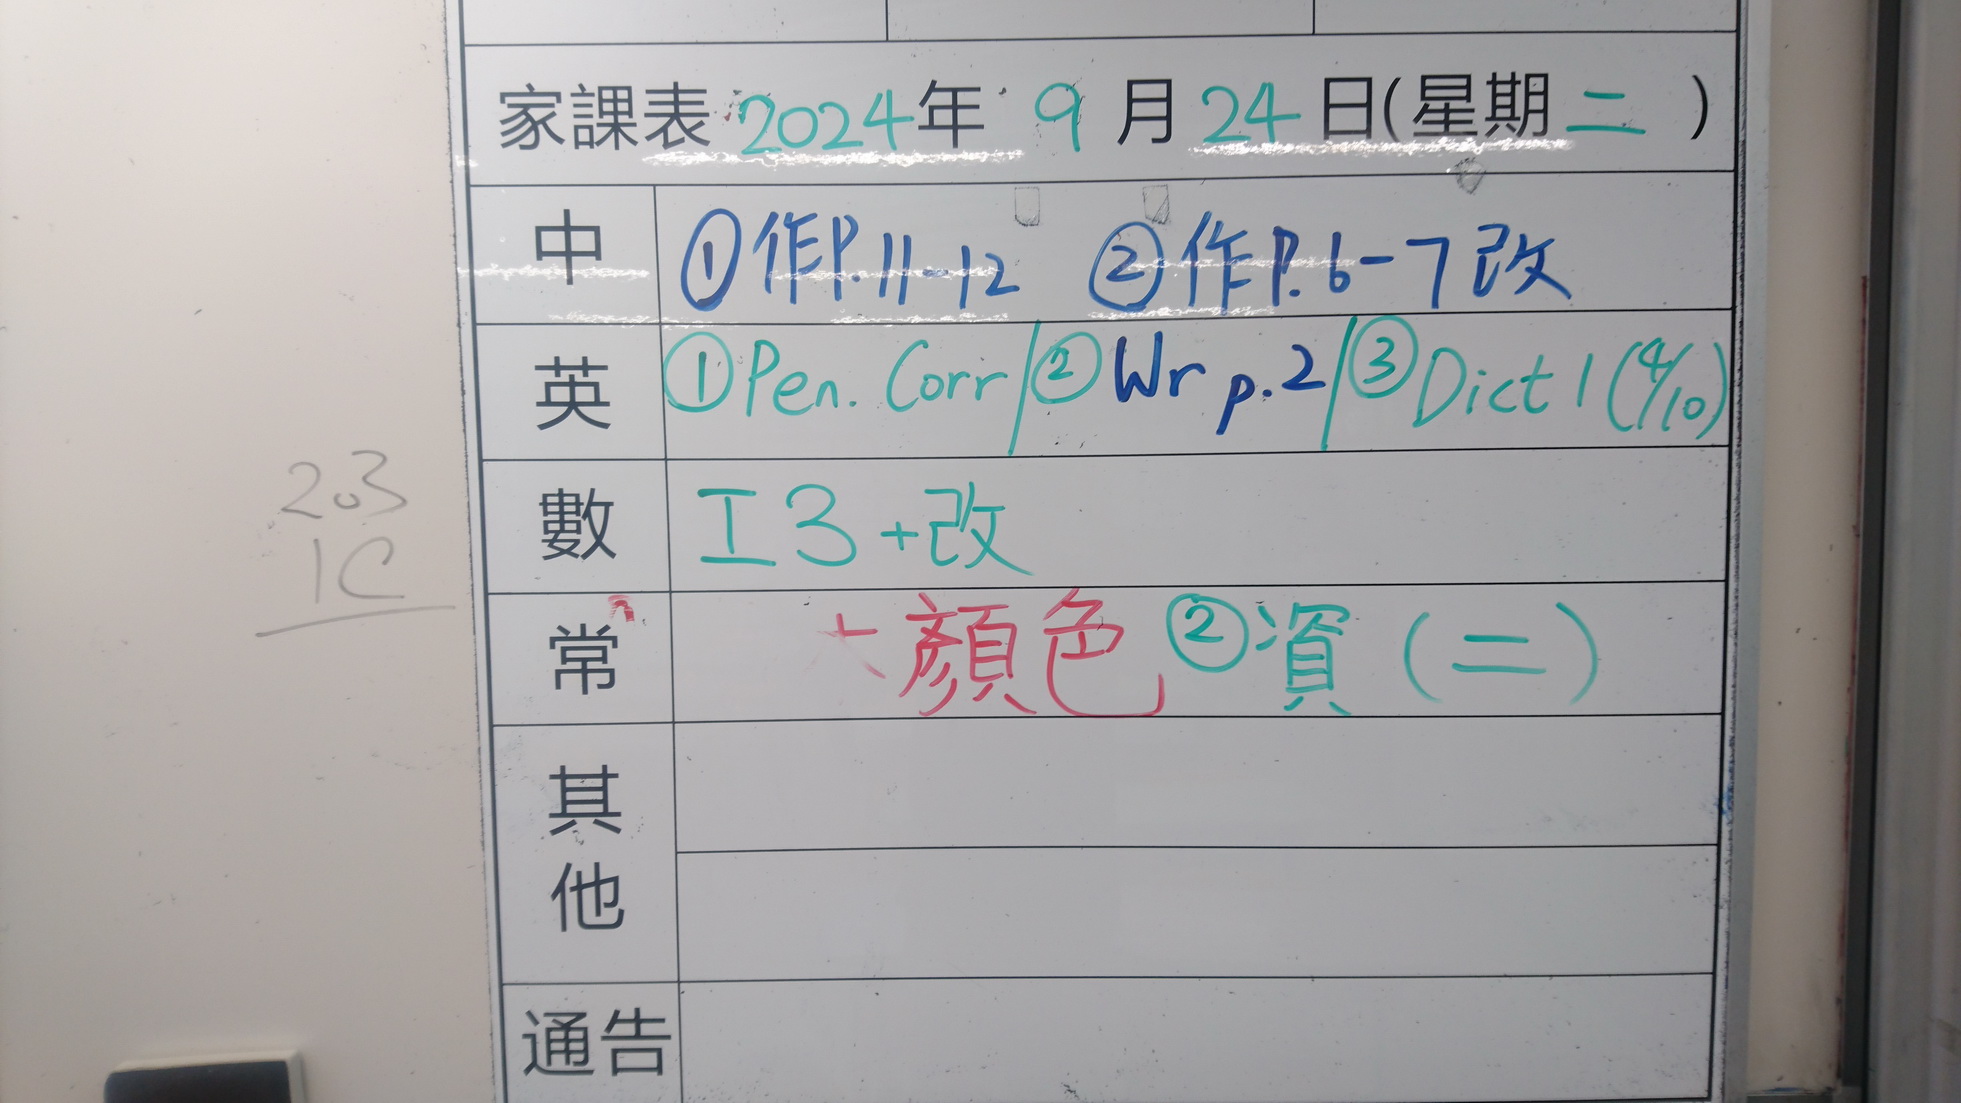 家課表 2024年 9月 24日(星期二)
中 ①作P.11-12 ②作P.6-7改
英 ①Pen. Corr/②Wr p.2/③Dict 1 (4/10)
數 工3+改
常 顏色 ②資(二)
其他
通告
203
1C